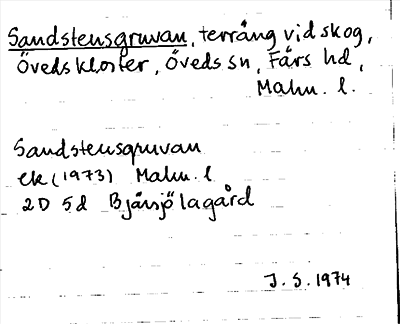 Sandstensgruvan, terräng vid skog,
Övedskloster, Öveds sn, Färs hd,
Malm. l.
Sandstensgruvan
ek (1973) Malm. l
2D 5d Bjärsjölagård
J. S. 1974